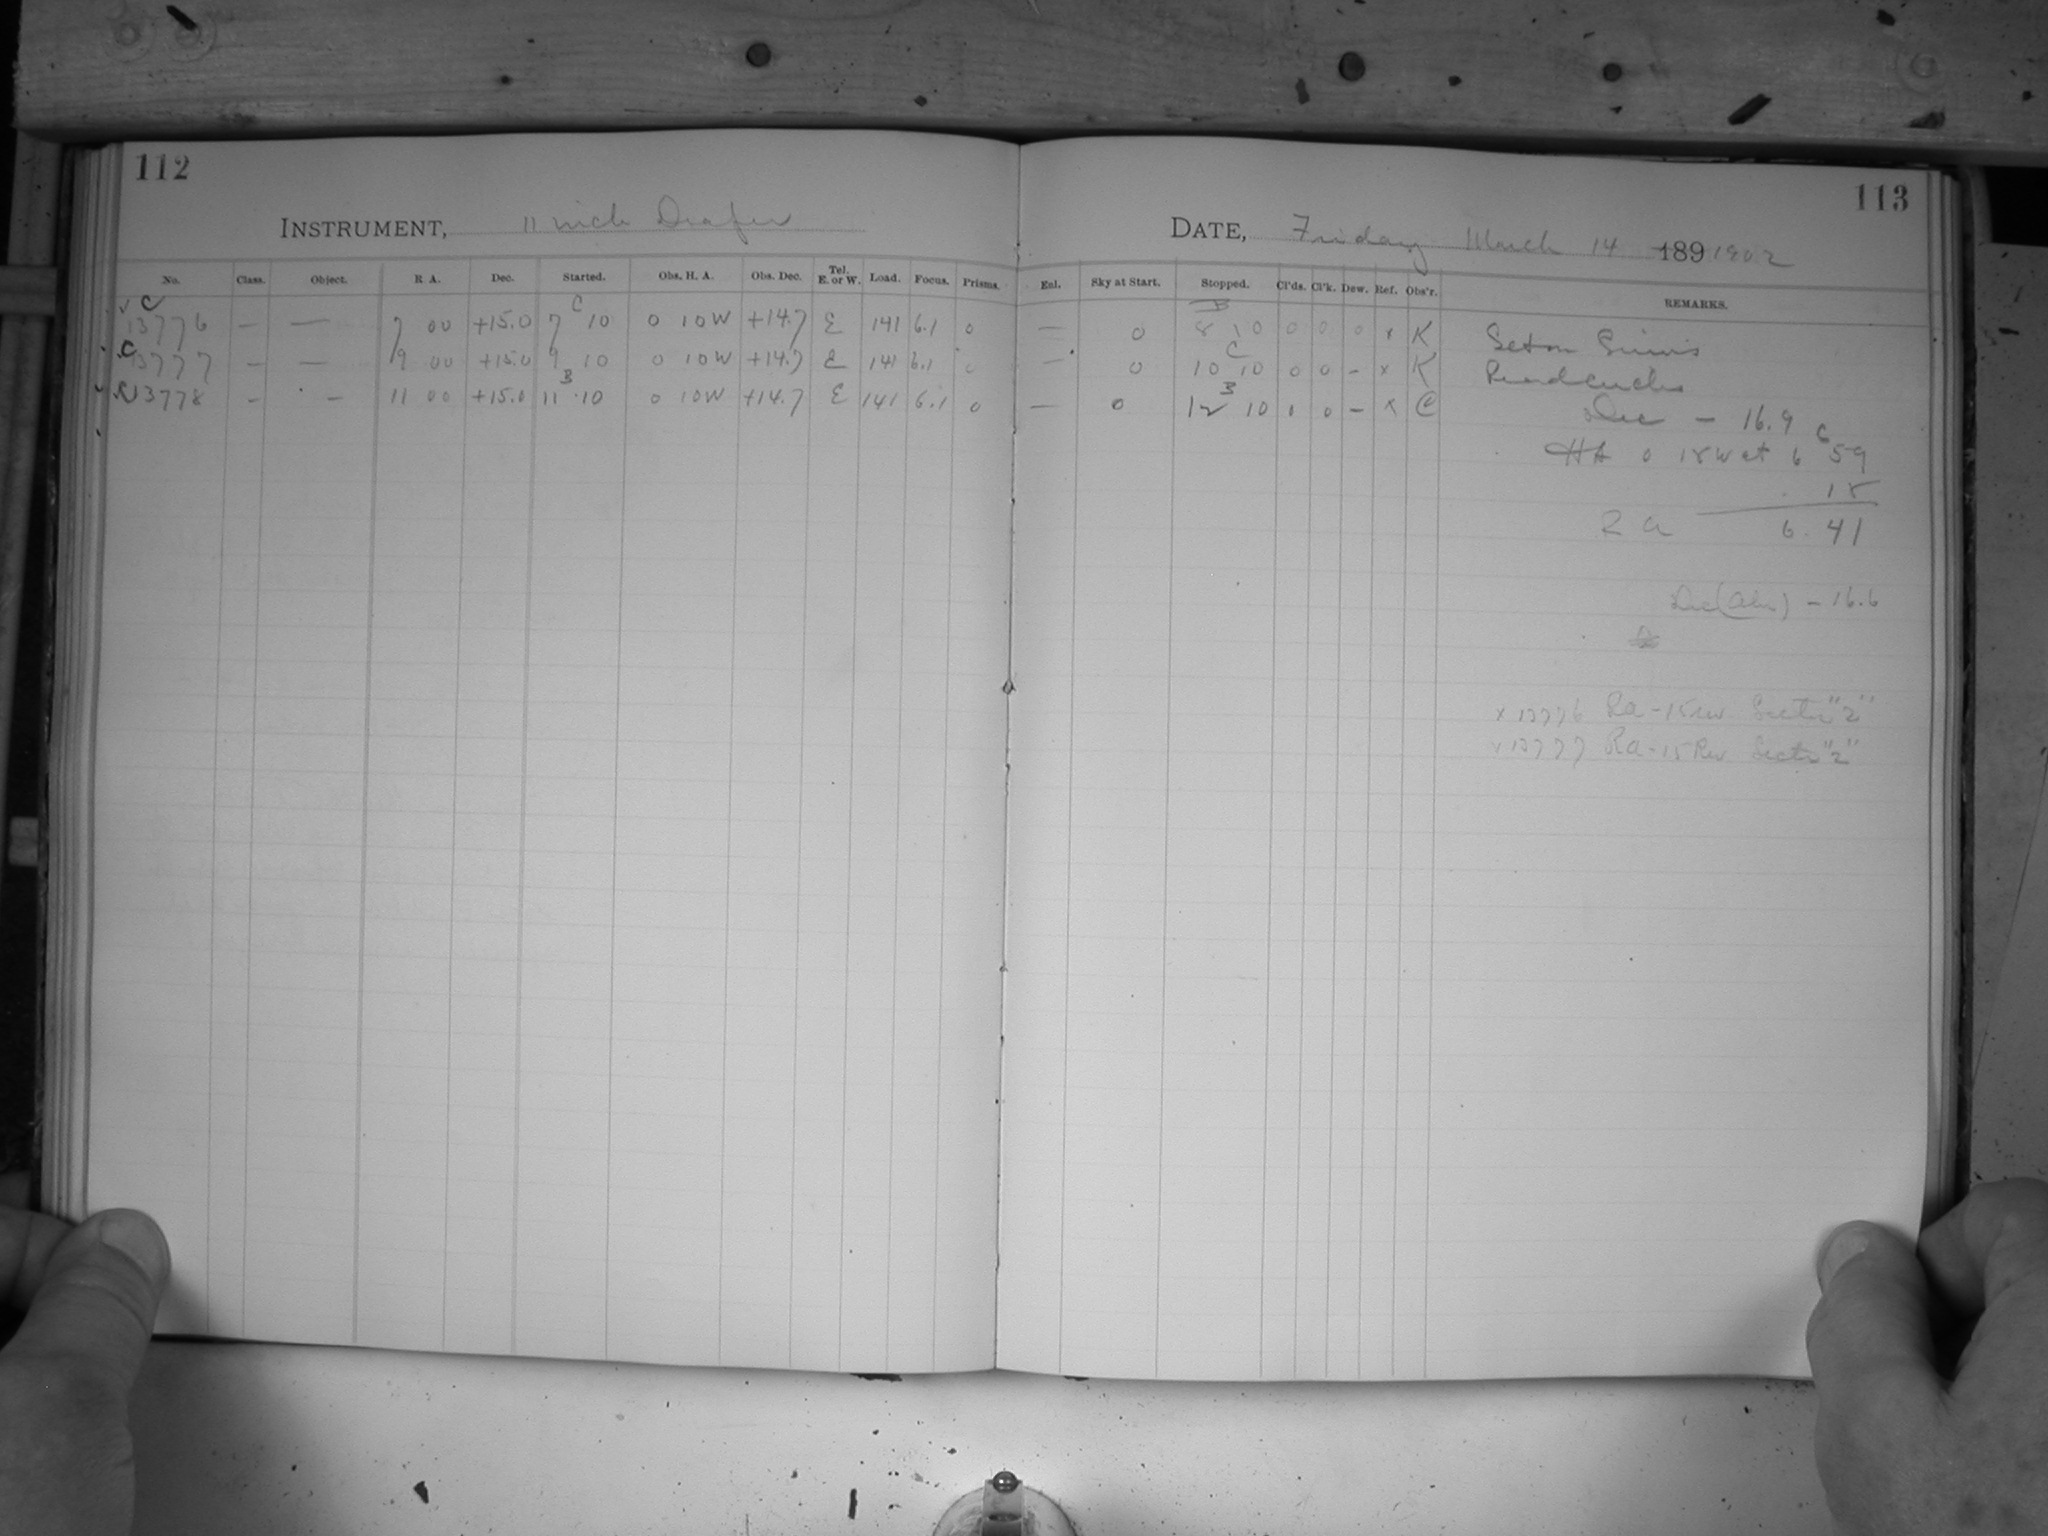 112
113
INSTRUMENT, 11 inch Draper
DATE, Friday March 14 189 1902
No. Class. Object. R A. Dec. Started. Obs. H. A. Obs. Dec. Tel. E. or W. Load. Focus. Prisms. Enl. Sky at Start. Stopped. Cl'ds. Cl'k. Dew. Ref. Obs'r. REMARKS.
√ C C B
13776 — — 7 00 +15.0 7 10 0 10W +14.7 E 141 6.1 0 — 0 8 10 0 0 0 x K Set on Sirius
C C
13777 — — 9 00 +15.0 9 10 0 10W +14.7 E 141 6.1 0 — 0 10 10 0 0 – x K
B B
13778 – – 11 00 +15.0 11 10 0 10W +14.7 E 141 6.1 0 — 0 12 10 0 0 – x C Dec – 16.9
C
HA 0 18W at 6 59
18
R a 6. 41
Dec – 16.6
x 13776 Ra - 15 rev Sector "2"
x 13777 Ra - 15 Rev Sector "2"